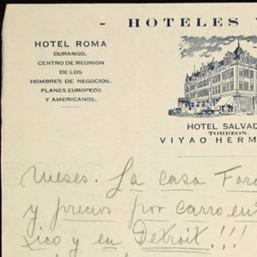 - HOTELES V
HOTEL ROMA
DURANGO.
CENTRO DE REUNION
DE LOS
HOMBRES DE NEGOCIOS.
PLANES EUROPEOS
Y AMERICANOS.
HOTEL SALVAD
TORREON.
VIYAO HERM
meses. La casa Ford
y precios por carro en
xico y en Detroit!!!